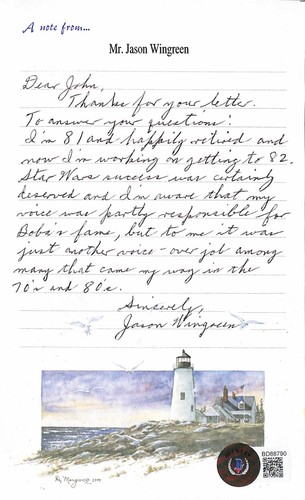 A note from...
Mr. Jason Wingreen
Dear John,
Thanks for your letter.
To answer your questions:
I'm 81 and happily retired and
now I'm working on getting to 82.
Star Wars success was certainly
deserved and I'm aware that my
voice was partly responsible for
Boba's fame, but to me it was
just another voice-over job among
many that came my way in the
70's and 80s.
Sincerely,
Jason Wingreen
BD88790